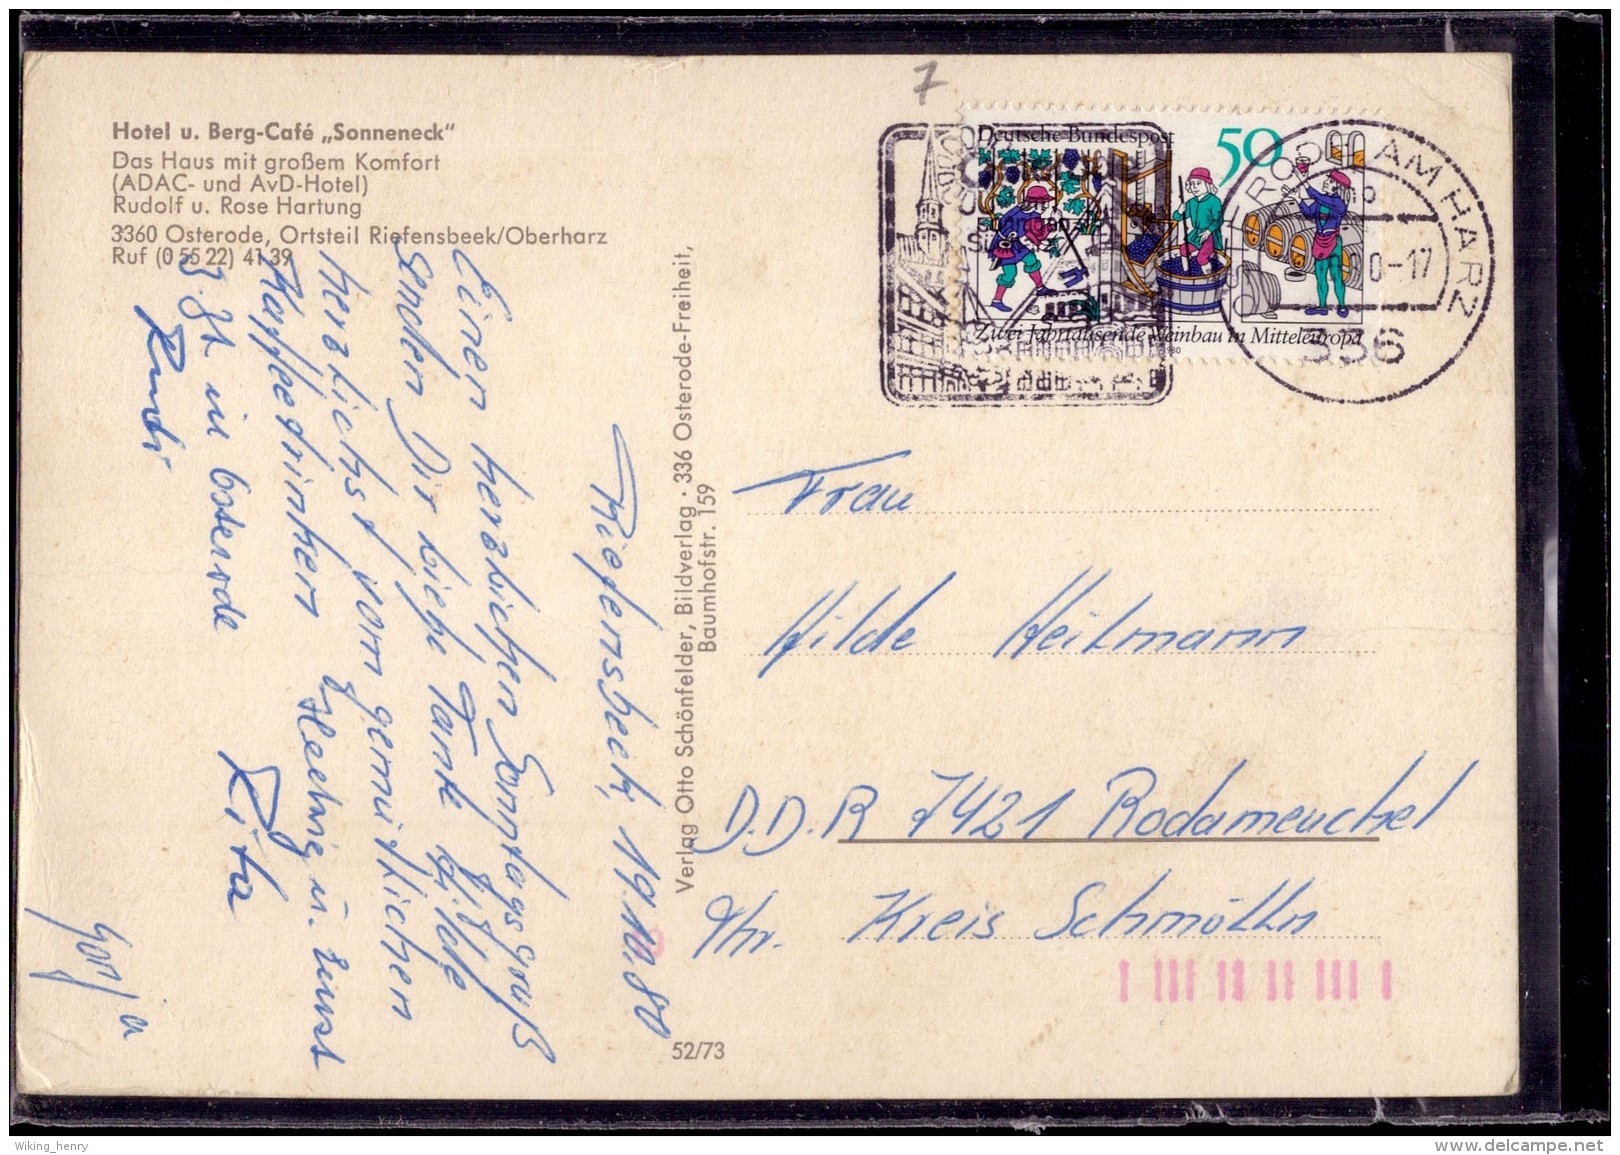 Hotel u. Berg-Café „Sonneneck"
Das Haus mit großem Komfort
(ADAC- und AvD-Hotel)
Rudolf u. Rose Hartung
3360 Osterode, Ortsteil Riefensbeek/Oberharz
Ruf (0 55 22) 41 39
Riefensbeek, 19.10.80
Einen herzlichen Sonntagsgruß
senden Dir liebe Tante Hilde
herzlichst vom gemütlichen
Kaffeetrinken Hedwig u. Ernst
z. Zt. in Osterode Rita
Rudi
Verlag Otto Schönfelder, Bildverlag · 336 Osterode-Freiheit,
Baumhofstr. 159
52/73
7
Deutsche Bundespost
50
Zwei Jahrtausende Weinbau in Mitteleuropa
AM HARZ
0-17
336
Frau
Hilde Heilmann
D.D.R 7421 Rodameuchel
Kreis Schmölln
Wiking_henry
www.delcampe.net